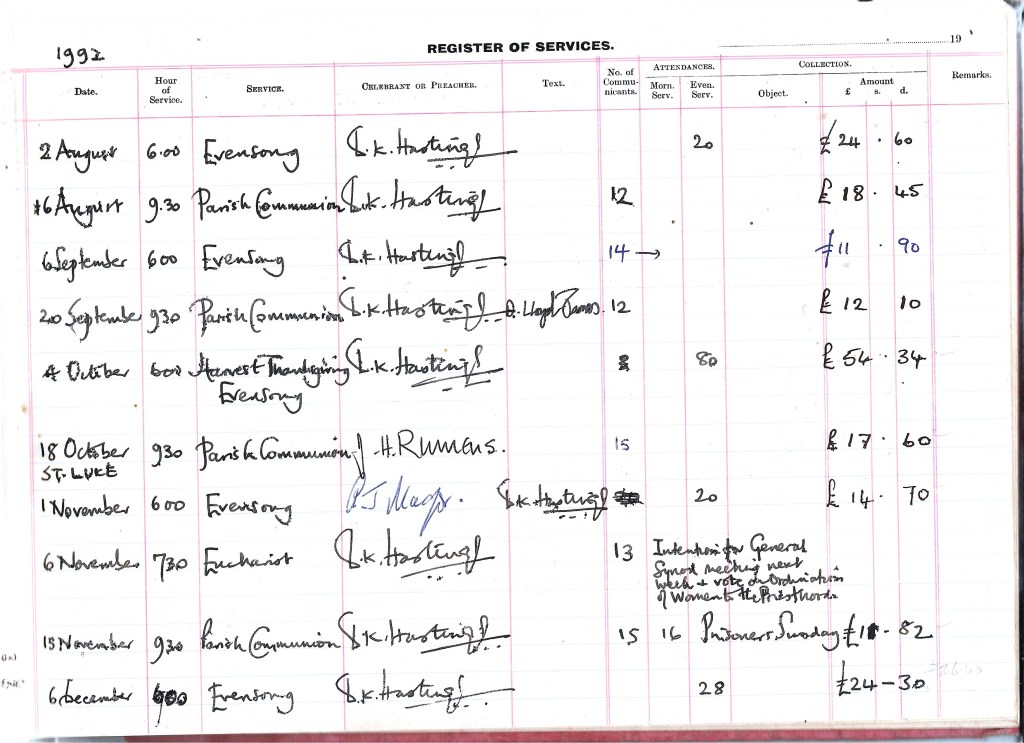 1992
REGISTER OF SERVICES.
19
Date. Hour of Service. SERVICE. CELEBRANT OR PREACHER. Text. No. of Communicants. ATTENDANCES. Morn. Serv. Even. Serv. COLLECTION. Object. Amount £ s. d. Remarks.
2 August 6.00 Evensong S.K. Hastings 20 £24 . 60
16 August 9.30 Parish Communion S.K. Hastings 12 £ 18 . 45
6 September 600 Evensong S.K. Hastings 14 → £11 . 90
20 September 930 Parish Communion S.K. Hastings D. Lloyd James. 12 £ 12 10
4 October 600 Harvest Thanksgiving S.K. Hastings 80 £ 54 . 34
Evensong
18 October 930 Parish Communion J. H. Rumens. 15 £ 17 . 60
ST. LUKE
1 November 600 Evensong S.K. Hastings 20 £ 14 . 70
6 November 730 Eucharist S.K. Hastings 13 Intention for General
Synod meeting next
week + vote on Ordination
of Women to the Priesthood
15 November 930 Parish Communion S.K. Hastings 15 16 Prisoners Sunday £11 - 82
6 December 600 Evensong S.K. Hastings 28 £24 - 30